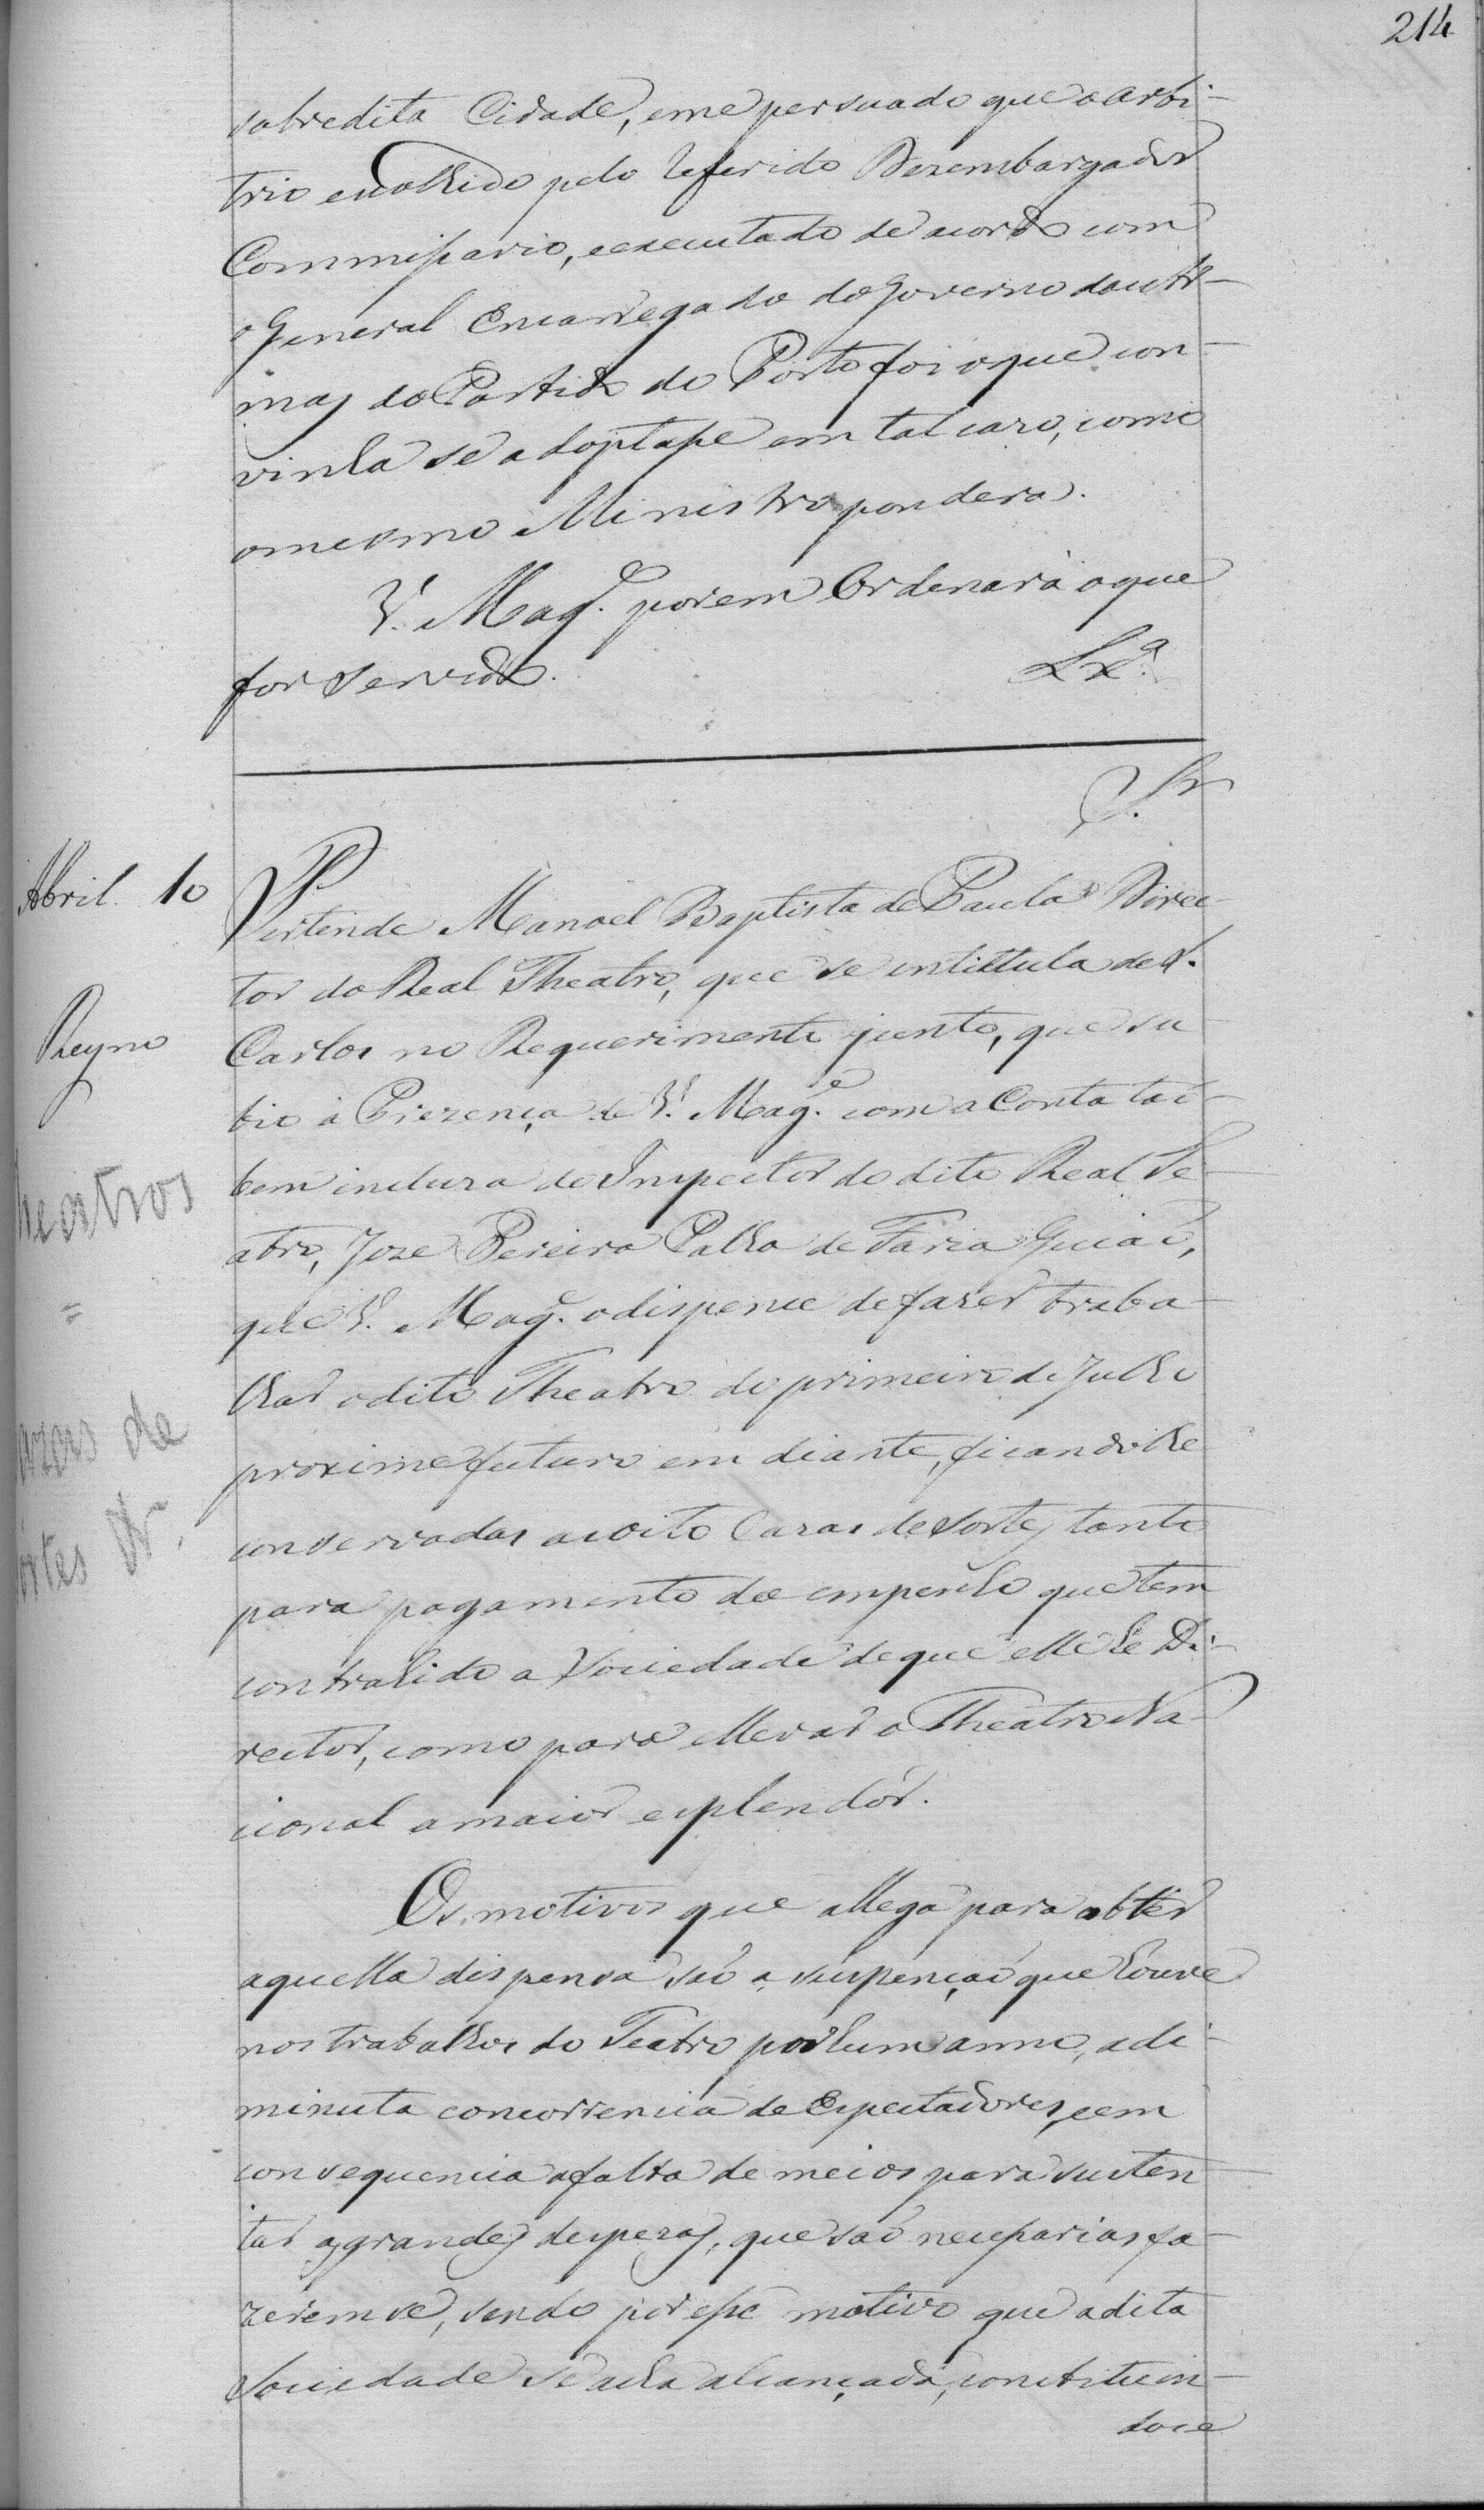 214
sobredita Cidade, eme persuado que o arbi-
trio escolhido pelo referido Dezembargador
Commissario, eexecutado de acordo com
o General Encarregado do Governo das Ar-
mas do Partido do Porto foi oque con-
vinha se adoptasse em tal cazo, como
omesmo Ministro pondera.
V. Mag.e porem Ordenará oque
for servido. Lx.a
Sr.
Abril 10
Pertende Manoel Baptista de Paula Direc-
tor do Real Theatro, que se intittula de S.
Reyno
Carlos no Requerimento junto, que su-
bio á Prezença de V. Mag.e com a Conta tam-
bem incluza do Inspector do dito Real Te-
heatros
atro, Joze Pereira Palha de Faria Guiaõ,
=
que V. Mag.e odispense de fazer traba-
lhar odito Theatro do primeiro de Julho
azas de
proximo futuro em diante, ficandolhe
ortes
conservadas as oito Cazas de Sortes tanto
para pagamento do empenho que tem
contrahido a Sociedade de que elle he Di-
rector, como para ellevar o Theatro Na-
cional a maior esplendór.
Os motivos que allega para obter
aquella dispensa saõ a suspençaõ que houve
nos trabalhos do Teatro por hum anno, a di-
minuta concorrencia de Espectadores, eem
consequencia afalta de meios para susten-
tar as grandes despezas, que saõ necessarias fa-
zeremse, sendo por esse motivo que adita
Sociedade se acha alcançada, constituin-
dose